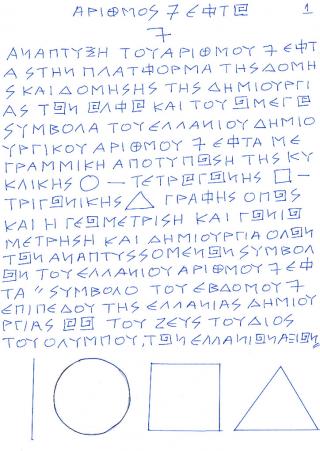 ΑΡΙΘΜΟΣ 7 ΕΦΤΑ 1
7
ΑΝΑΠΤΥΞΗ ΤΟΥ ΑΡΙΘΜΟΥ 7 ΕΦΤ
Α ΣΤΗΝ ΠΛΑΤΦΟΡΜΑ ΤΗΣ ΔΟΜΗ
Σ ΚΑΙ ΔΟΜΗΣΗΣ ΤΗΣ ΔΗΜΙΟΥΡΓΙ
ΑΣ ΤΩΝ ΑΛΦΑ ΚΑΙ ΤΟΥ ΩΜΕΓΑ
ΣΥΜΒΟΛΑ ΤΟΥ ΕΛΛΑΝΙΟΥ ΔΗΜΙΟ
ΥΡΓΙΚΟΥ ΑΡΙΘΜΟΥ 7 ΕΦΤΑ ΜΕ
ΓΡΑΜΜΙΚΗ ΑΠΟΤΥΠΩΣΗ ΤΗΣ ΚΥ
ΚΛΙΚΗΣ ○ — ΤΕΤΡΑΓΩΝΗΣ □ —
ΤΡΙΓΩΝΙΚΗΣ △ ΓΡΑΦΗΣ ΟΠΩΣ
ΚΑΙ Η ΓΕΩΜΕΤΡΙΣΗ ΚΑΙ ΓΩΝΙΩ
ΜΕΤΡΗΣΗ ΚΑΙ ΔΗΜΙΟΥΡΓΙΑ ΟΛΩΝ
ΤΩΝ ΑΝΑΠΤΥΣΣΟΜΕΝΩΝ ΣΥΜΒΟΛ
ΩΝ ΤΟΥ ΕΛΛΑΝΙΟΥ ΑΡΙΘΜΟΥ 7 ΕΦ
ΤΑ " ΣΥΜΒΟΛΟ ΤΟΥ ΕΒΔΟΜΟΥ 7
ΕΠΙΠΕΔΟΥ ΤΗΣ ΕΛΛΑΝΙΑΣ ΔΗΜΙΟΥ
ΡΓΙΑΣ ΑΩ ΤΟΥ ΖΕΥΣ ΤΟΥ ΔΙΟΣ
ΤΟΥ ΟΛΥΜΠΟΥ, ΤΩΝ ΕΛΛΑΝΙΩΝ ΑΞΙΩΝ